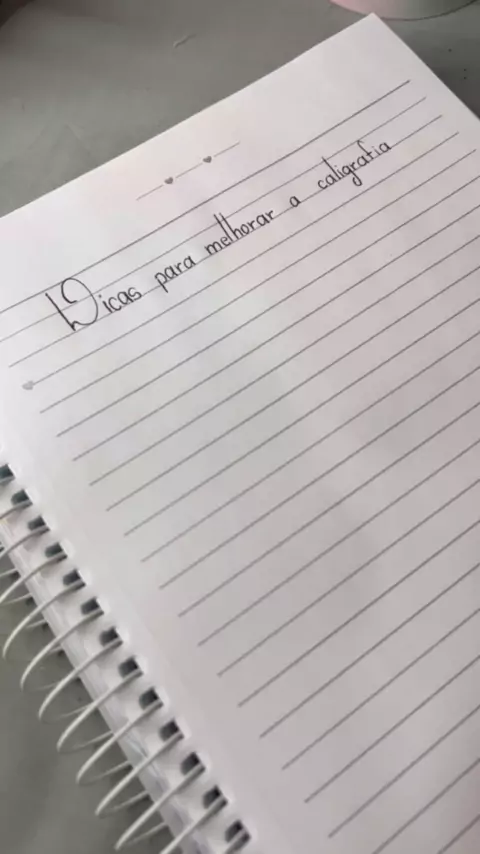 Dicas para melhorar a caligrafia